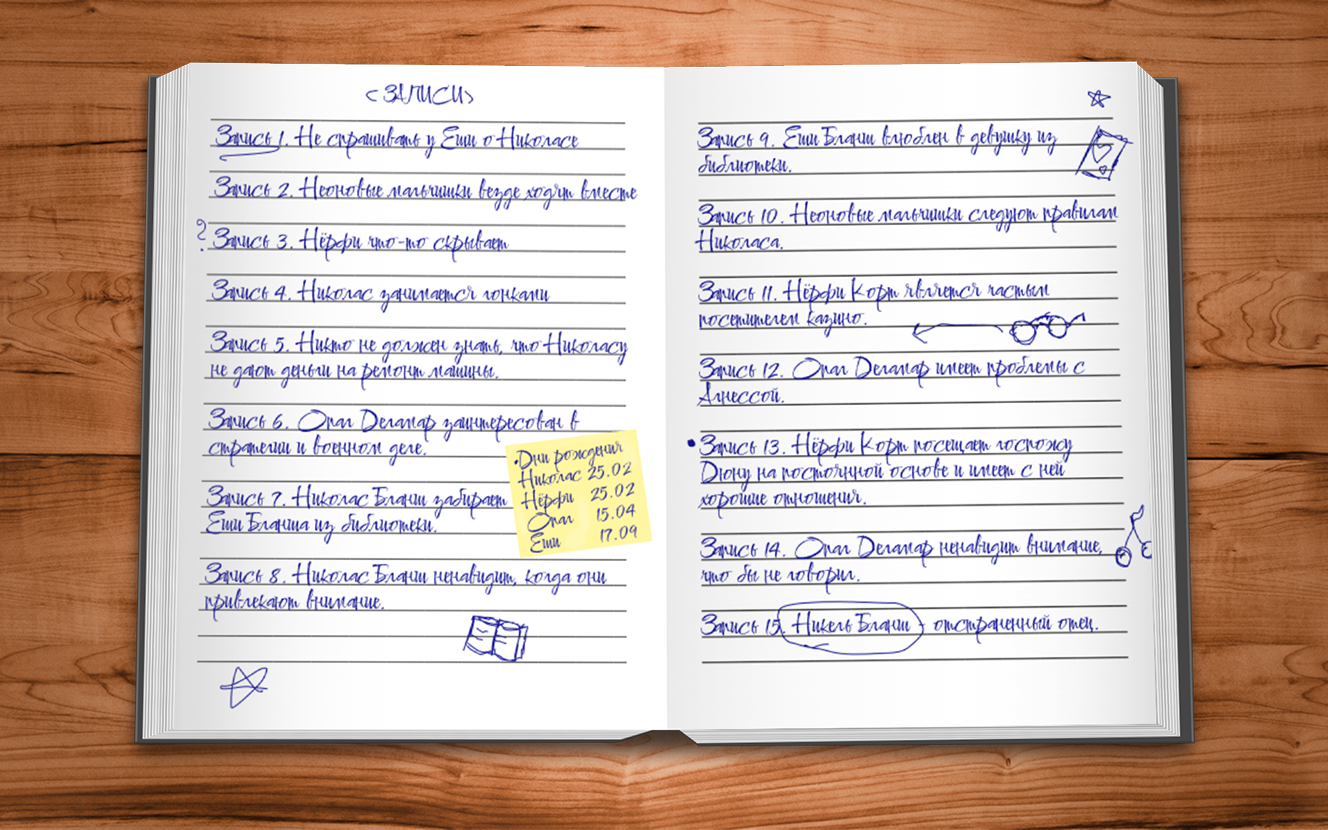 <ЗАПИСИ>
Запись 1. Не спрашивать у Еши о Николасе
Запись 2. Неоновые мальчишки везде ходят вместе
?
Запись 3. Нёрфи что-то скрывает
Запись 4. Николас занимается гонками
Запись 5. Никто не должен знать, что Николасу
не дают деньги на ремонт машины.
Запись 6. Опал Делапар заинтересован в
стратегии и военном деле.
Запись 7. Николас Бланш забирает
Еши Бланша из библиотеки.
Запись 8. Николас Бланш ненавидит, когда они
привлекают внимание.
•Дни рождения
Николас 25.02
Нёрфи 25.02
Опал 15.04
Еши 17.09
Запись 9. Еши Бланш влюблен в девушку из
библиотеки.
Запись 10. Неоновые мальчишки следуют правилам
Николаса.
Запись 11. Нёрфи Корт является частым
посетителем казино.
Запись 12. Опал Делапар имеет проблемы с
Агнессой.
• Запись 13. Нёрфи Корт посещает госпожу
Дюну на постоянной основе и имеет с ней
хорошие отношения.
Запись 14. Опал Делапар ненавидит внимание,
что бы не говорил.
Запись 15. Никель Бланш - отстраненный отец.